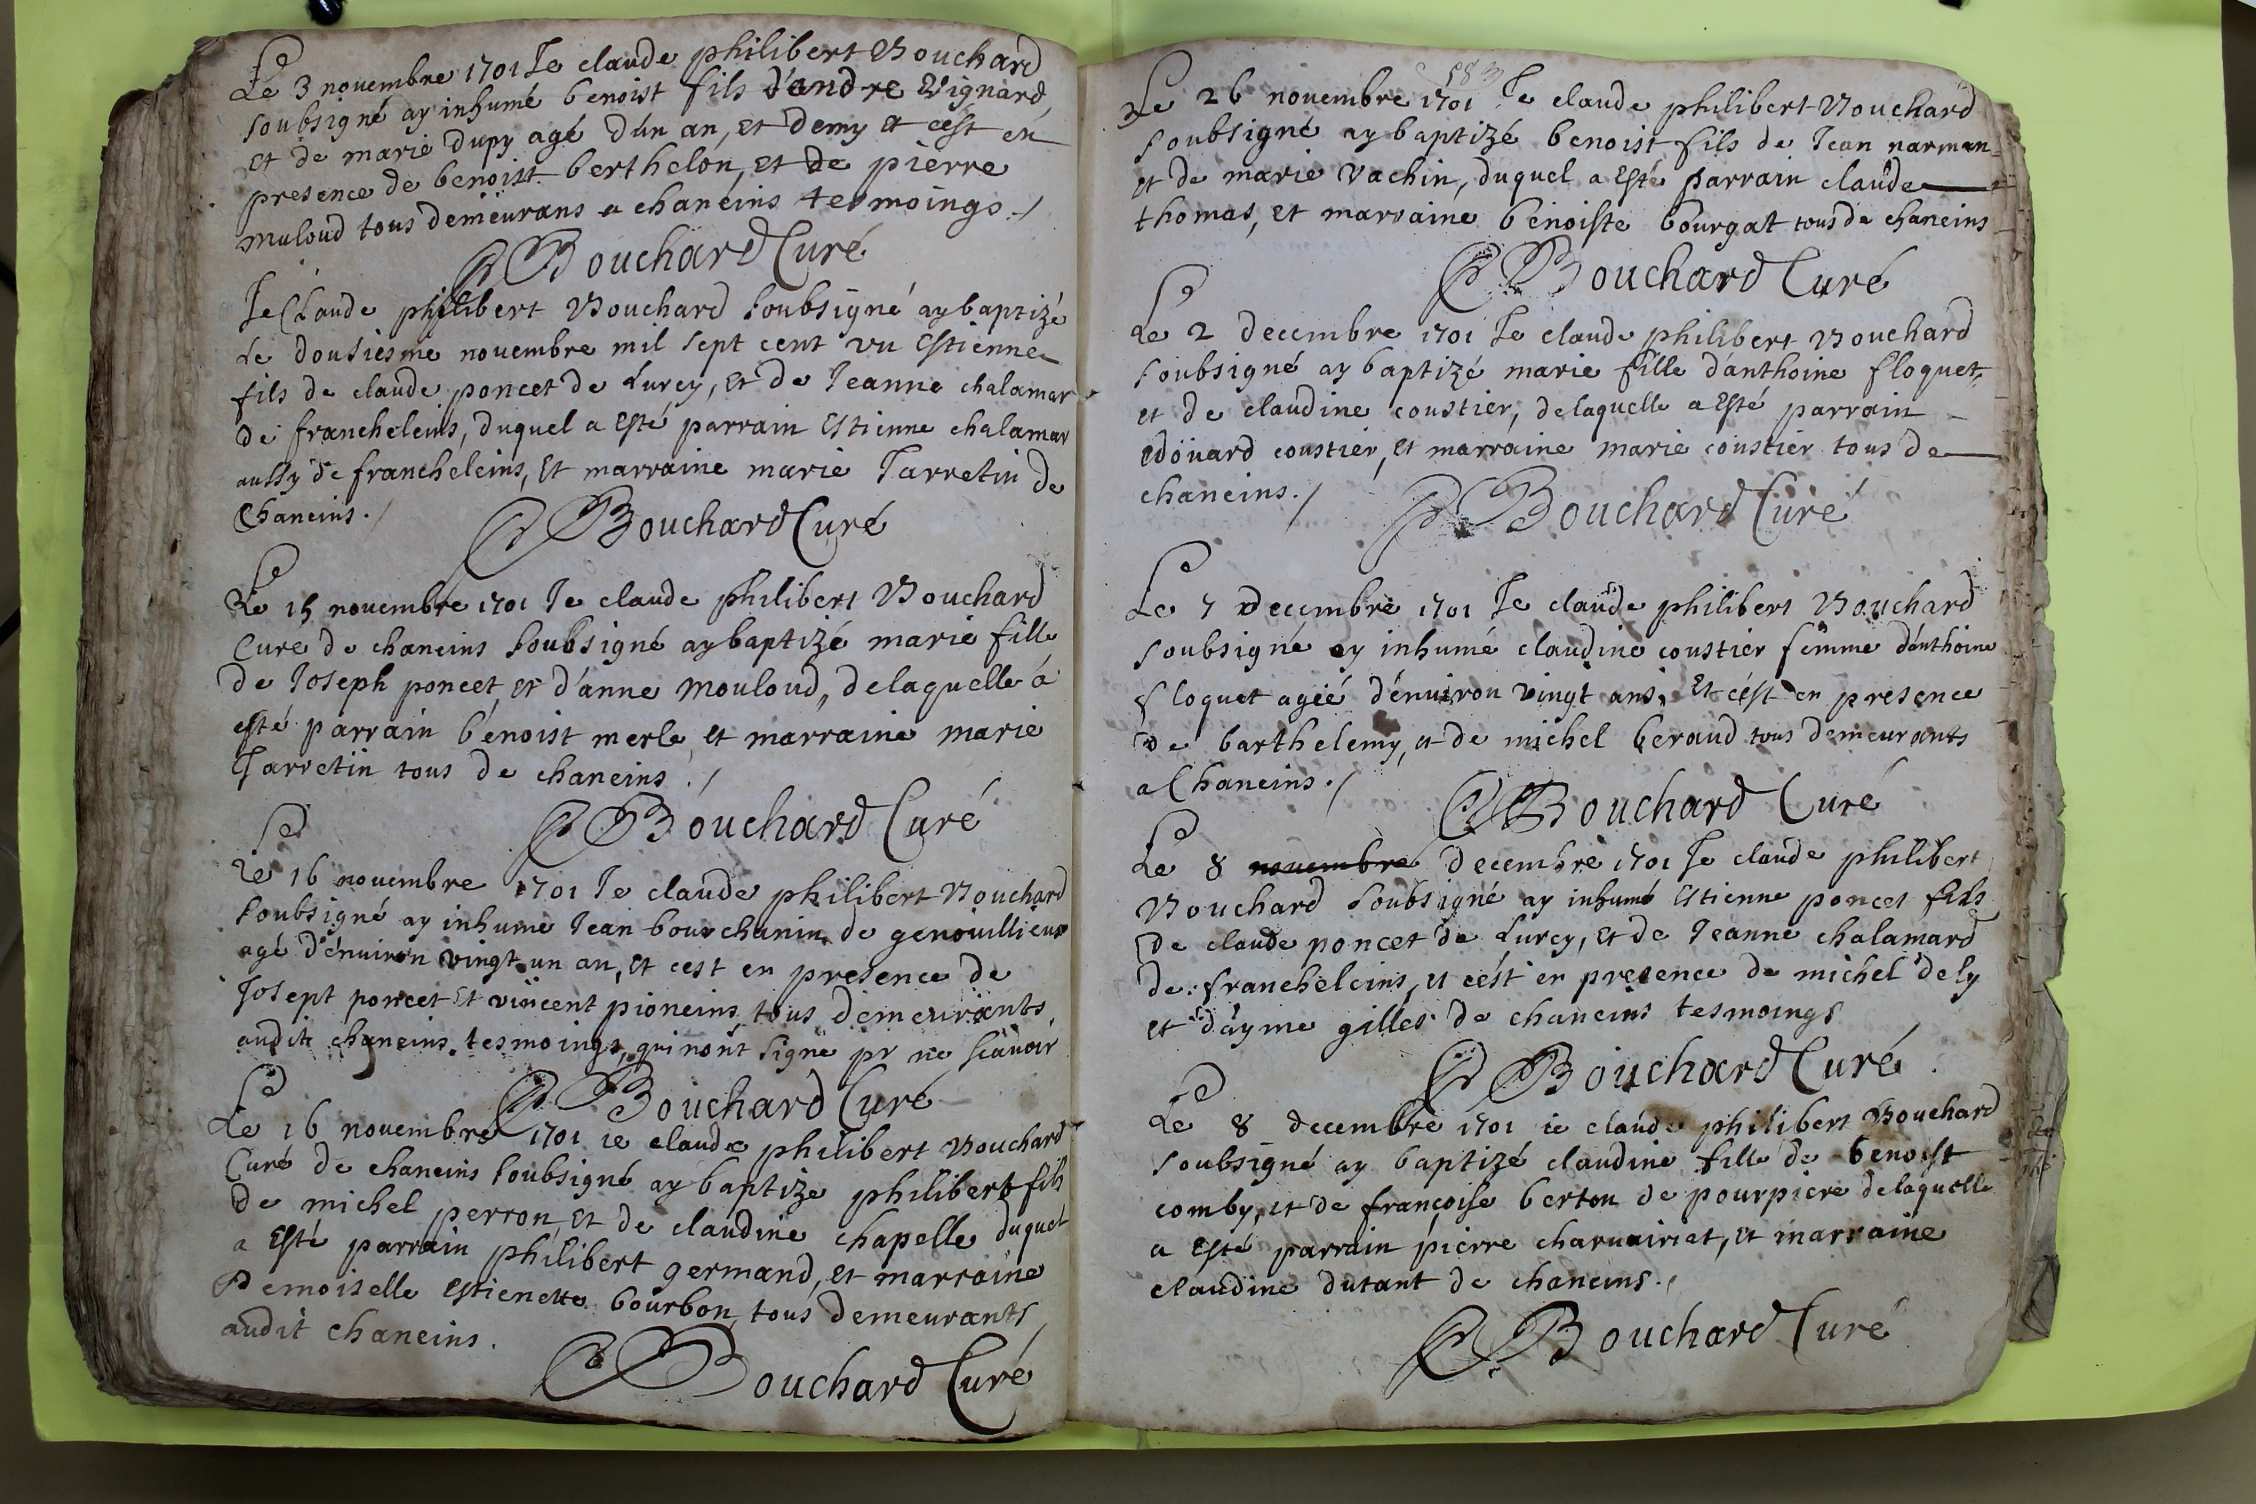 Le 3 novembre 1701 Je claude philibert Bouchard
soubsigné ay inhumé benoist fils d'andre Vignard
et de marie dupy agé d'un an, et demy et c'est en
presence de benoist berthelon, et de pierre
muloud tous demeurans a chaneins tesmoings ./
Bouchard Curé
Je Claude philibert Bouchard soubsigné ay baptizé
Le dousiesme novembre mil sept cent vn Estienne
fils de claude poncet de Lurcy, et de Jeanne chalamar
de francheleins, duquel a esté parrain Estienne chalamar
aussy de francheleins, et marraine marie Jarretin de
Chaneins ./
Bouchard Curé
Le 15 novembre 1701 Je claude philibert Bouchard
Curé de chaneins soubsigné ay baptizé marie fille
de Joseph poncet, et d'anne mouloud, delaquelle à
esté parrain benoist merle, et marraine marie
Jarretin tous de chaneins ./
Bouchard Curé
Le 16 novembre 1701 Je claude philibert Bouchard
soubsigné ay inhumé Jean bourchanin de genouillieux
agé d'environ vingt un an, et cest en presence de
Josept poncet et vincent pioneins tous demeurants
audit chaneins tesmoings, qui n'ont signé pr ne scavoir
Bouchard Curé
Le 16 novembre 1701 ie claude philibert Bouchard
Curé de chaneins soubsigné ay baptizé philibert fils
de michel perron, et de claudine chapelle duquel
a esté parrain philibert germand, et marraine
Demoiselle Estienette bourbon, tous demeurants
audit chaneins .
Bouchard Curé
583
Le 26 novembre 1701 Je claude philibert Bouchard
soubsigné ay baptizé benoist fils de Jean narman
et de marie Vachin, duquel a esté parrain claude
thomas, et marraine benoiste bourgat tous de chaneins
Bouchard Curé
Le 2 decembre 1701 Je claude philibert Bouchard
soubsigné ay baptizé marie fille d'anthoine floquet,
et de claudine coustier, delaquelle a esté parrain
edoüard coustier, et marraine marie coustier tous de
chaneins ./
Bouchard Curé
Le 7 decembre 1701 Je claude philibert Bouchard
soubsigné ay inhumé claudine coustier femme d'anthoine
floquet ageé d'environ vingt ans, et c'est en presence
de barthelemy, et de michel beraud tous demeurants
a Chaneins ./
Bouchard Curé
Le 8 novembre decembre 1701 Je claude philibert
Bouchard soubsigné ay inhumé Estienne poncet fils
de claude poncet de Lurcy, et de Jeanne chalamard
de francheleins, et c'est en presence de michel dely
et d'ayme gilles de chaneins tesmoings
Bouchard Curé
Le 8 decembre 1701 ie claude philibert Bouchard
soubsigné ay baptizé claudine fille de benoist
comby, et de françoise berton de pourpiere delaquelle
a esté parrain pierre charvairiat, et marraine
claudine dutant de chaneins ./
Bouchard Curé